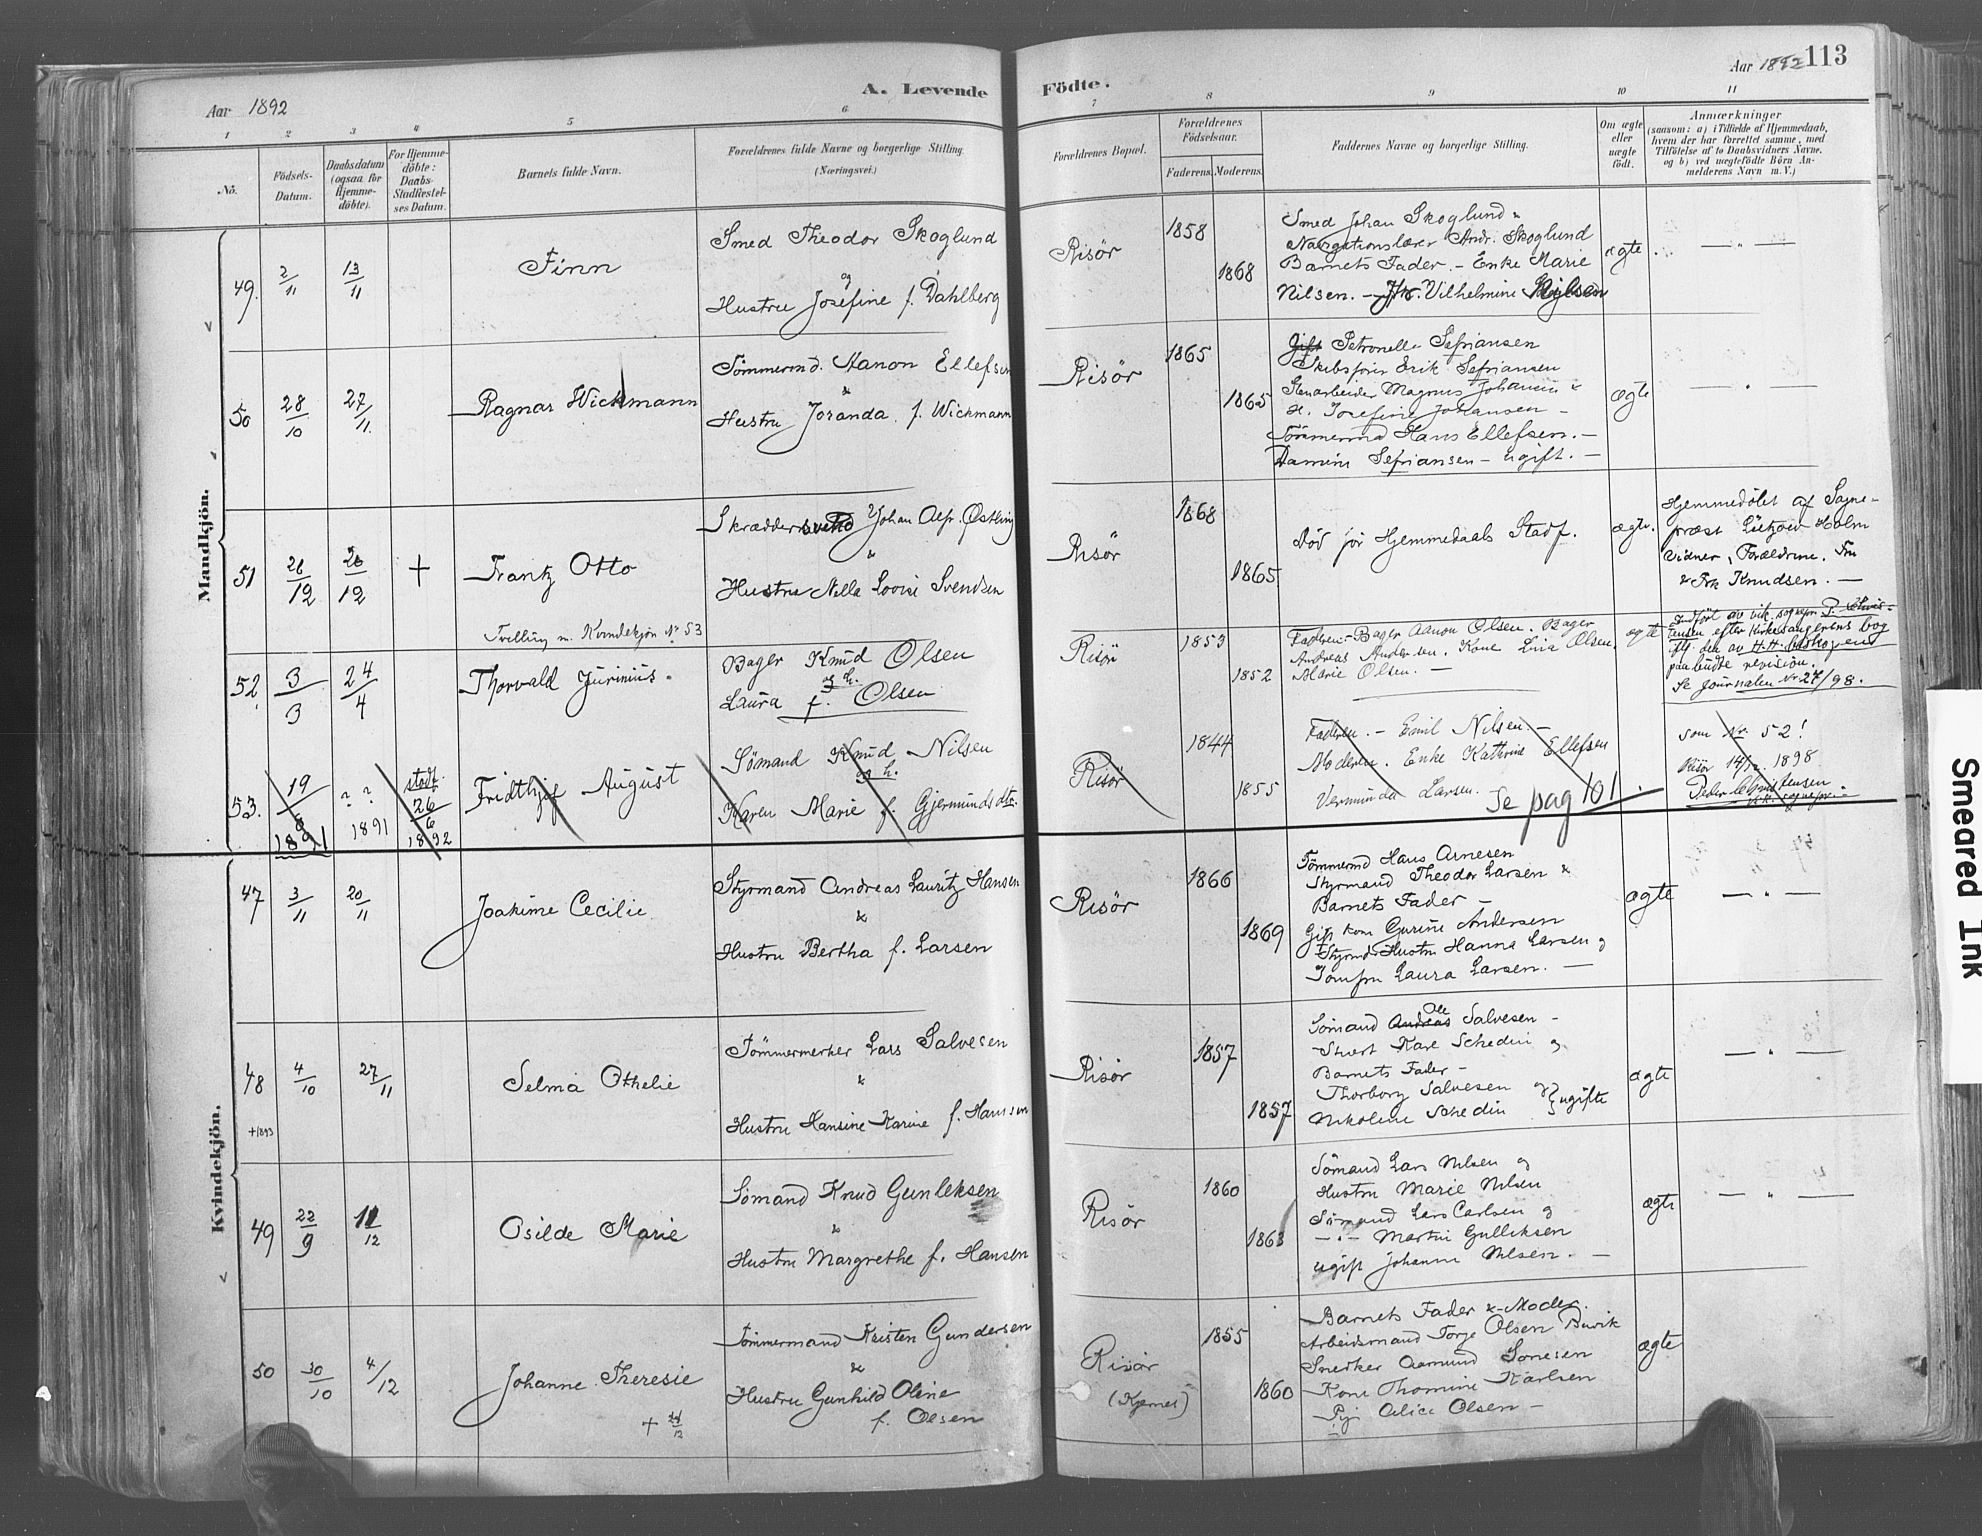 113
Aar 1892
A. Levende Födte.
Aar 1892
1 2 3 4 5 6 7 8 9 10 11
No.
Födsels-
Datum.
Daabsdatum
(ogsaa for
Hjemme-
döbte).
For Hjemme-
döbte:
Daabs-
Stadfæstel-
ses Datum.
Barnets fulde Navn.
Forældrenes fulde Navne og borgerlige Stilling.
(Næringsvei.)
Forældrenes Bopæl.
Forældrenes
Födselsaar.
Faderens. Moderens.
Faddernes Navne og borgerlige Stilling.
Om ægte
eller
uægte
født.
Anmærkninger
(saasom: a) i Tilfælde af Hjemmedaab,
hvem der har forrettet samme, med
Tilföielse af to Daabsvidners Navne,
og b) ved uægtefödte Börn An-
melderens Navn m. V.)
Mandkjön.
49. 2/11 13/11
Finn
Smed Theodor Skoglund
og
Hustru Josefine f. Dahlberg
Risör
1858
1868
Smed Johan Skoglund &
Navigationslærer Andr. Skoglund
Barnets Fader. - Enke Marie
Nilsen. - Vilhelmine
ægte
— " —
50 28/10 27/11.
Ragnar Wichmann
Tömmermd. Aanon Ellefsen
&
Hustru Joranda f. Wichmann
Risör
1865
1865
Gift Petronelle Sefriansen
Skibsförer Erik Sefriansen
Stenarbeider Magnus Johansen &
H. Josefine Johansen -
Tömmermd Hans Ellefsen. -
Damine Sefriansen - ugift. -
ægte
— " —
51 26/12 26/12 +
Frantz Otto
Tvilling m. Kvindekjön No 53
Skræddersvend Johan Alfr. Østling
&
Hustru Nilla Lovise Svendsen
Risör
1868
1865
Död för Hjemmedaabs Stadf.
ægte.
Hjemmedöbt af Sogne-
præst Lützow Holm
Vidner, Forældrene. Fru
& Frk Knudsen. —
52. 3/3 24/4
Thorvald Jurinius.
Bager Knud Olsen
og h.
Laura f. Olsen
Risör
1853
1852
Faderen - Bager Aanon Olsen. Bager
Andreas Andersen. Kone Lina Olsen.
Marie Olsen. —
ægte
Indfört av vik. sognepr. P. Chris-
tensen efter Kirkesangerens bog
ifl. den av H.H. biskopen
paabudte revision.
Se Journalen No 27/98.
53. 19/8 1891
? ? 1891
stadf. 26/6 1892
Fridthjof August
Sømand Knud Nilsen
og h.
Karen Marie f. Gjermundsdtr.
Risör
1844
1855
Faderen. - Emil Nilsen. -
Moderen. Enke Kathrine Ellefsen
Vermunda Larsen.
Se pag 101.
som No. 52!
Risör 14/12. 1898
Peder Christensen
vik. sognepr. -
Kvindekjön.
47 3/11 20/11
Joakime Cecilie
Styrmand Andreas Lauritz Hansen
&
Hustru Bertha f. Larsen
Risör
1866
1869
Tömmermd Hans Arnesen
Styrmand Theodor Larsen &
Barnets Fader -
Gift kone Gurine Andersen
Styrmds Hustru Hanna Larsen og
Jomfru Laura Larsen. —
ægte
— " —
48 4/10 27/11
+1893
Selma Othelie
Tömmermerker Lars Salvesen
&
Hustru Hansine Karine f. Hansen
Risör
1857
1857
Sömand Andreas Ole Salvesen -
Stuert Karl Schedin og
Barnets Fader -
Thorborg Salvesen og
Nikoline Schedin } ugifte
ægte
— " —
49 22/9 11/12
Osilde Marie
Sömand Knud Gunleksen
&
Hustru Margrethe f. Hansen
Risör
1860
1863
Sömand Lars Nilsen og
Hustru Marie Nilsen
Sömand Lars Carlsen og
— " — Martin Gulleksen
ugift Johanne Nilsen. —
ægte
— " —
50 30/10 4/12
Johanne Theresie
+ 24/12
Tömmermand Kristen Gundersen
&
Hustru Gunhild Oline
f. Olsen
Risör
(Kjernes)
1855
1860
Barnets Fader & Moder.
Arbeidsmand Torje Olsen Buvik
Snedker Aamund Sonesen
Kone Thomine Karlsen
Pige Alice Olsen -
ægte
Smeared Ink